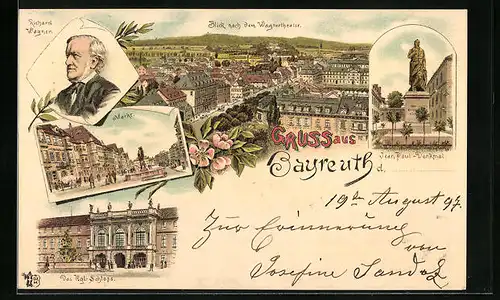 Richard
Wagner.
Blick nach dem Wagnertheater.
Markt.
Gruss aus
Bayreuth
Jean Paul-Denkmal.
d.
19th August 97.
Zur Erinnerung
von
Josefine Sandoz
Das Kgl. Schloss.